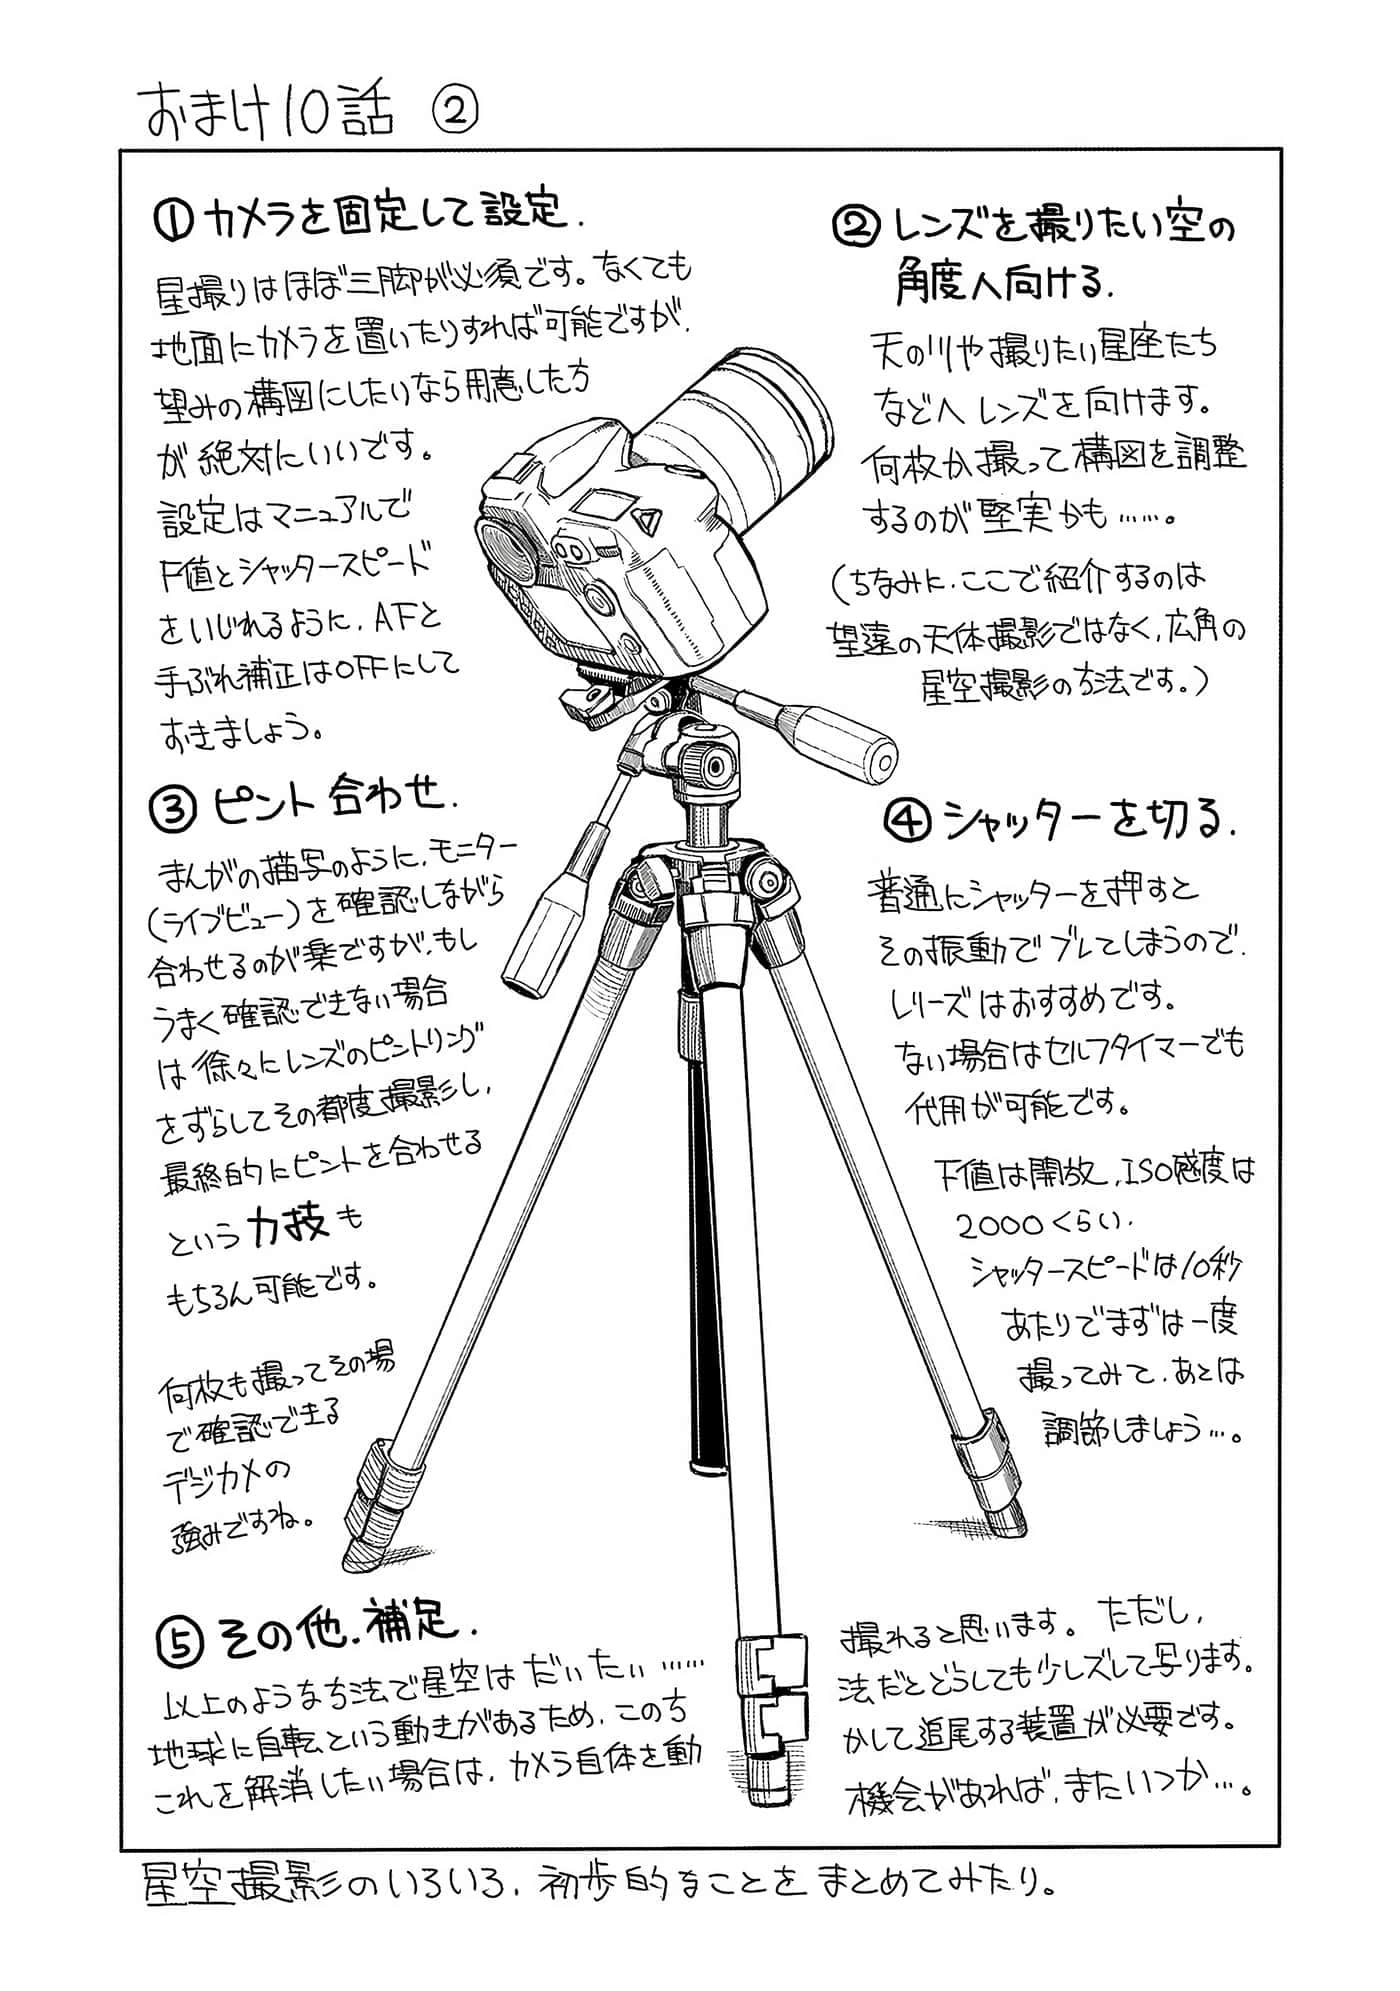 おまけ10話 ②
① カメラを固定して設定.
星撮りはほぼ三脚が必須です。なくても
地面にカメラを置いたりすれば可能ですが、
望みの構図にしたいなら用意した方
が絶対にいいです。
設定はマニュアルで
F値とシャッタースピード
をいじれるように、AFと
手ぶれ補正はOFFにして
おきましょう。
② レンズを撮りたい空の
角度へ向ける.
天の川や撮りたい星座たち
などへレンズを向けます。
何枚か撮って構図を調整
するのが堅実かも……。
(ちなみに、ここで紹介するのは
望遠の天体撮影ではなく、広角の
星空撮影の方法です。)
③ ピント合わせ.
まんがの描写のように、モニター
(ライブビュー)を確認しながら
合わせるのが楽ですが、もし
うまく確認できない場合
は徐々にレンズのピントリング
をずらしてその都度撮影し、
最終的にピントを合わせる
という力技も
もちろん可能です。
何枚も撮ってその場
で確認できる
デジカメの
強みですね。
④ シャッターを切る.
普通にシャッターを押すと
その振動でブレてしまうので、
レリーズはおすすめです。
ない場合はセルフタイマーでも
代用が可能です。
F値は開放、ISO感度は
2000くらい、
シャッタースピードは10秒
あたりでまずは一度
撮ってみて、あとは
調節しましょう…。
⑤ その他、補足.
以上のような方法で星空はだいたい……
地球に自転という動きがあるため、この方
これを解消したい場合は、カメラ自体を動
撮れると思います。ただし、
法だとどうしても少しズレて写ります。
かして追尾する装置が必要です。
機会があれば、またいつか…。
星空撮影のいろいろ、初歩的なことをまとめてみたり。